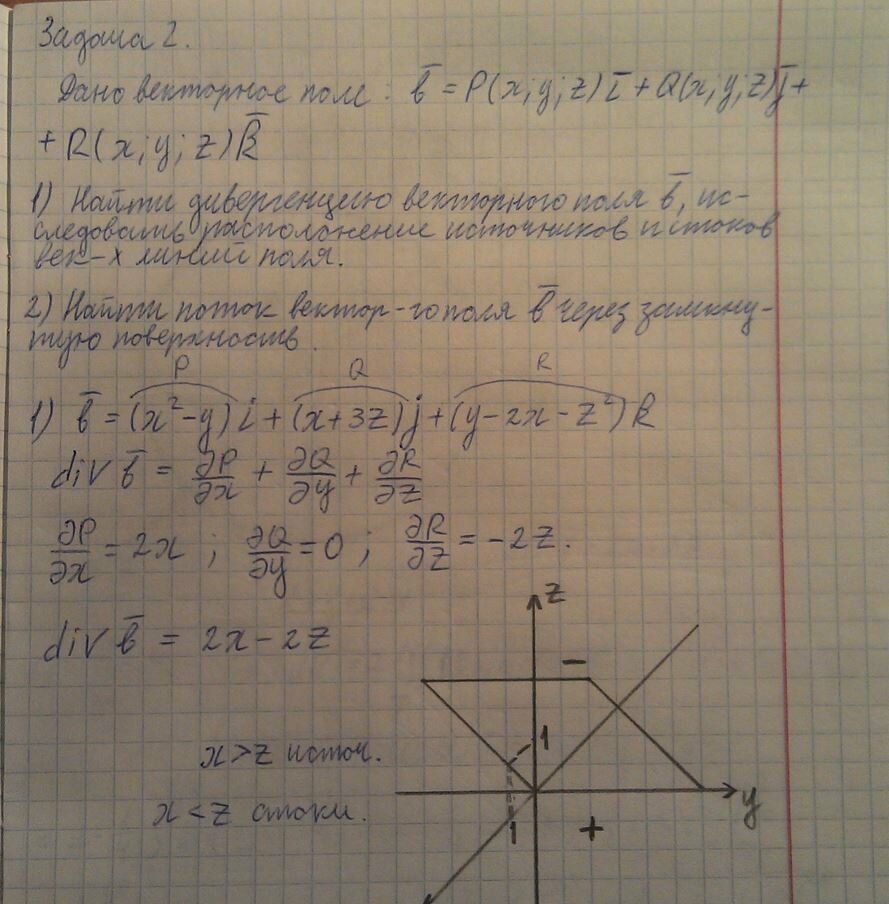 Задача 2.
Дано векторное поле: b̅ = P(x;y;z)i̅ + Q(x;y;z)j̅ +
+ R(x;y;z)k̅
1) Найти дивергенцию векторного поля b̅, ис-
следовать расположение источников и стоков
век-х линий поля.
2) Найти поток вектор-го поля b̅ через замкну-
тую поверхность.
P Q R
1) b̅ = (x²-y)i + (x+3z)j + (y-2x-z²)k
div b̅ = ∂P/∂x + ∂Q/∂y + ∂R/∂z
∂P/∂x = 2x ; ∂Q/∂y = 0 ; ∂R/∂z = -2z.
div b̅ = 2x - 2z
x>z источ.
x<z стоки.
z
−
1
y
1
+